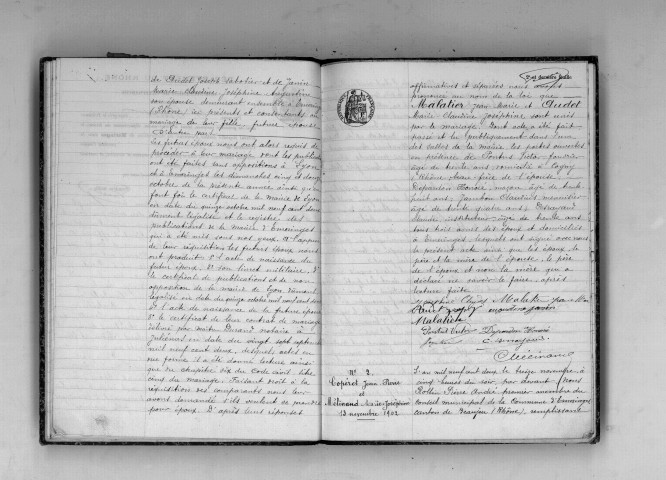 de Oudet Joseph Sabotier et de Janin
Marie Claudine Joséphine Augustine
son épouse demeurant ensemble à
(Rhône) ici présents et consentants au
mariage de leur fille, future épouse
D'autre part
Les futurs époux nous ont alors requis de
procéder à leur mariage dont les publications
ont été faites sans oppositions à Lyon
et à Emeringes les dimanches cinq et douze
octobre de la présente année ainsi que
font foi le certificat de la mairie de Lyon
en date du quinze octobre mil neuf cent deux
dûment légalisé et le registre des
publications de la mairie d'Emeringes
qui a été mis sous nos yeux. A l'appui
de leur réquisitions les futurs époux nous
ont produit 1° l'acte de naissance du
futur époux 2° son livret militaire 3°
le certificat de publications et de non
opposition de la mairie de Lyon dûment
légalisé en date du quinze octobre mil neuf cent deux
4° l'acte de naissance de la future épouse
5° le certificat de leur contrat de mariage
délivré par maître notaire à
Juliénas en date du vingt sept
mil neuf cent deux, desquels actes en
due forme il a été donné lecture ainsi
que du chapitre six du Code civil titre
cinq du mariage. Faisant droit à la
réquisition des comparants nous leur
avons demandé s'ils veulent se prendre
pour époux. D'après leurs réponses
affirmatives et séparées nous avons
prononcé au nom de la loi que
Malatier Jean Marie et Oudet
Marie Claudine Joséphine sont unis
par le mariage. Dont acte a été fait
passé et lu publiquement dans une
des salles de la mairie les portes ouvertes
en présence de Pontus Victor
âgé de trente ans domicilié à
Rhône beau frère de l'épouse
Depardon Honoré maçon âgé de trente
huit ans Jambon Claudius menuisier
âgé de trente quatre ans
instituteur âgé de trente ans
tous trois amis des époux et domiciliés
à Emeringes lesquels ont signé avec nous
le présent acte ainsi que les époux le
père et la mère de l'épouse, le père
de l'époux et non la mère qui a
déclaré ne savoir le faire, après
lecture faite
Malatier Jean Marie
Malatier
Pontus Victor Depardon Honoré
N° 2.
Copéret Jean Pierre
et
Mélinand Marie Joséphine
13 novembre 1902
L'an mil neuf cent deux le treize novembre à
cinq heures du soir, par devant Nous
Rollin Pierre André premier membre du
Conseil municipal de la Commune d'Emeringes
canton de Beaujeu (Rhône), remplissant